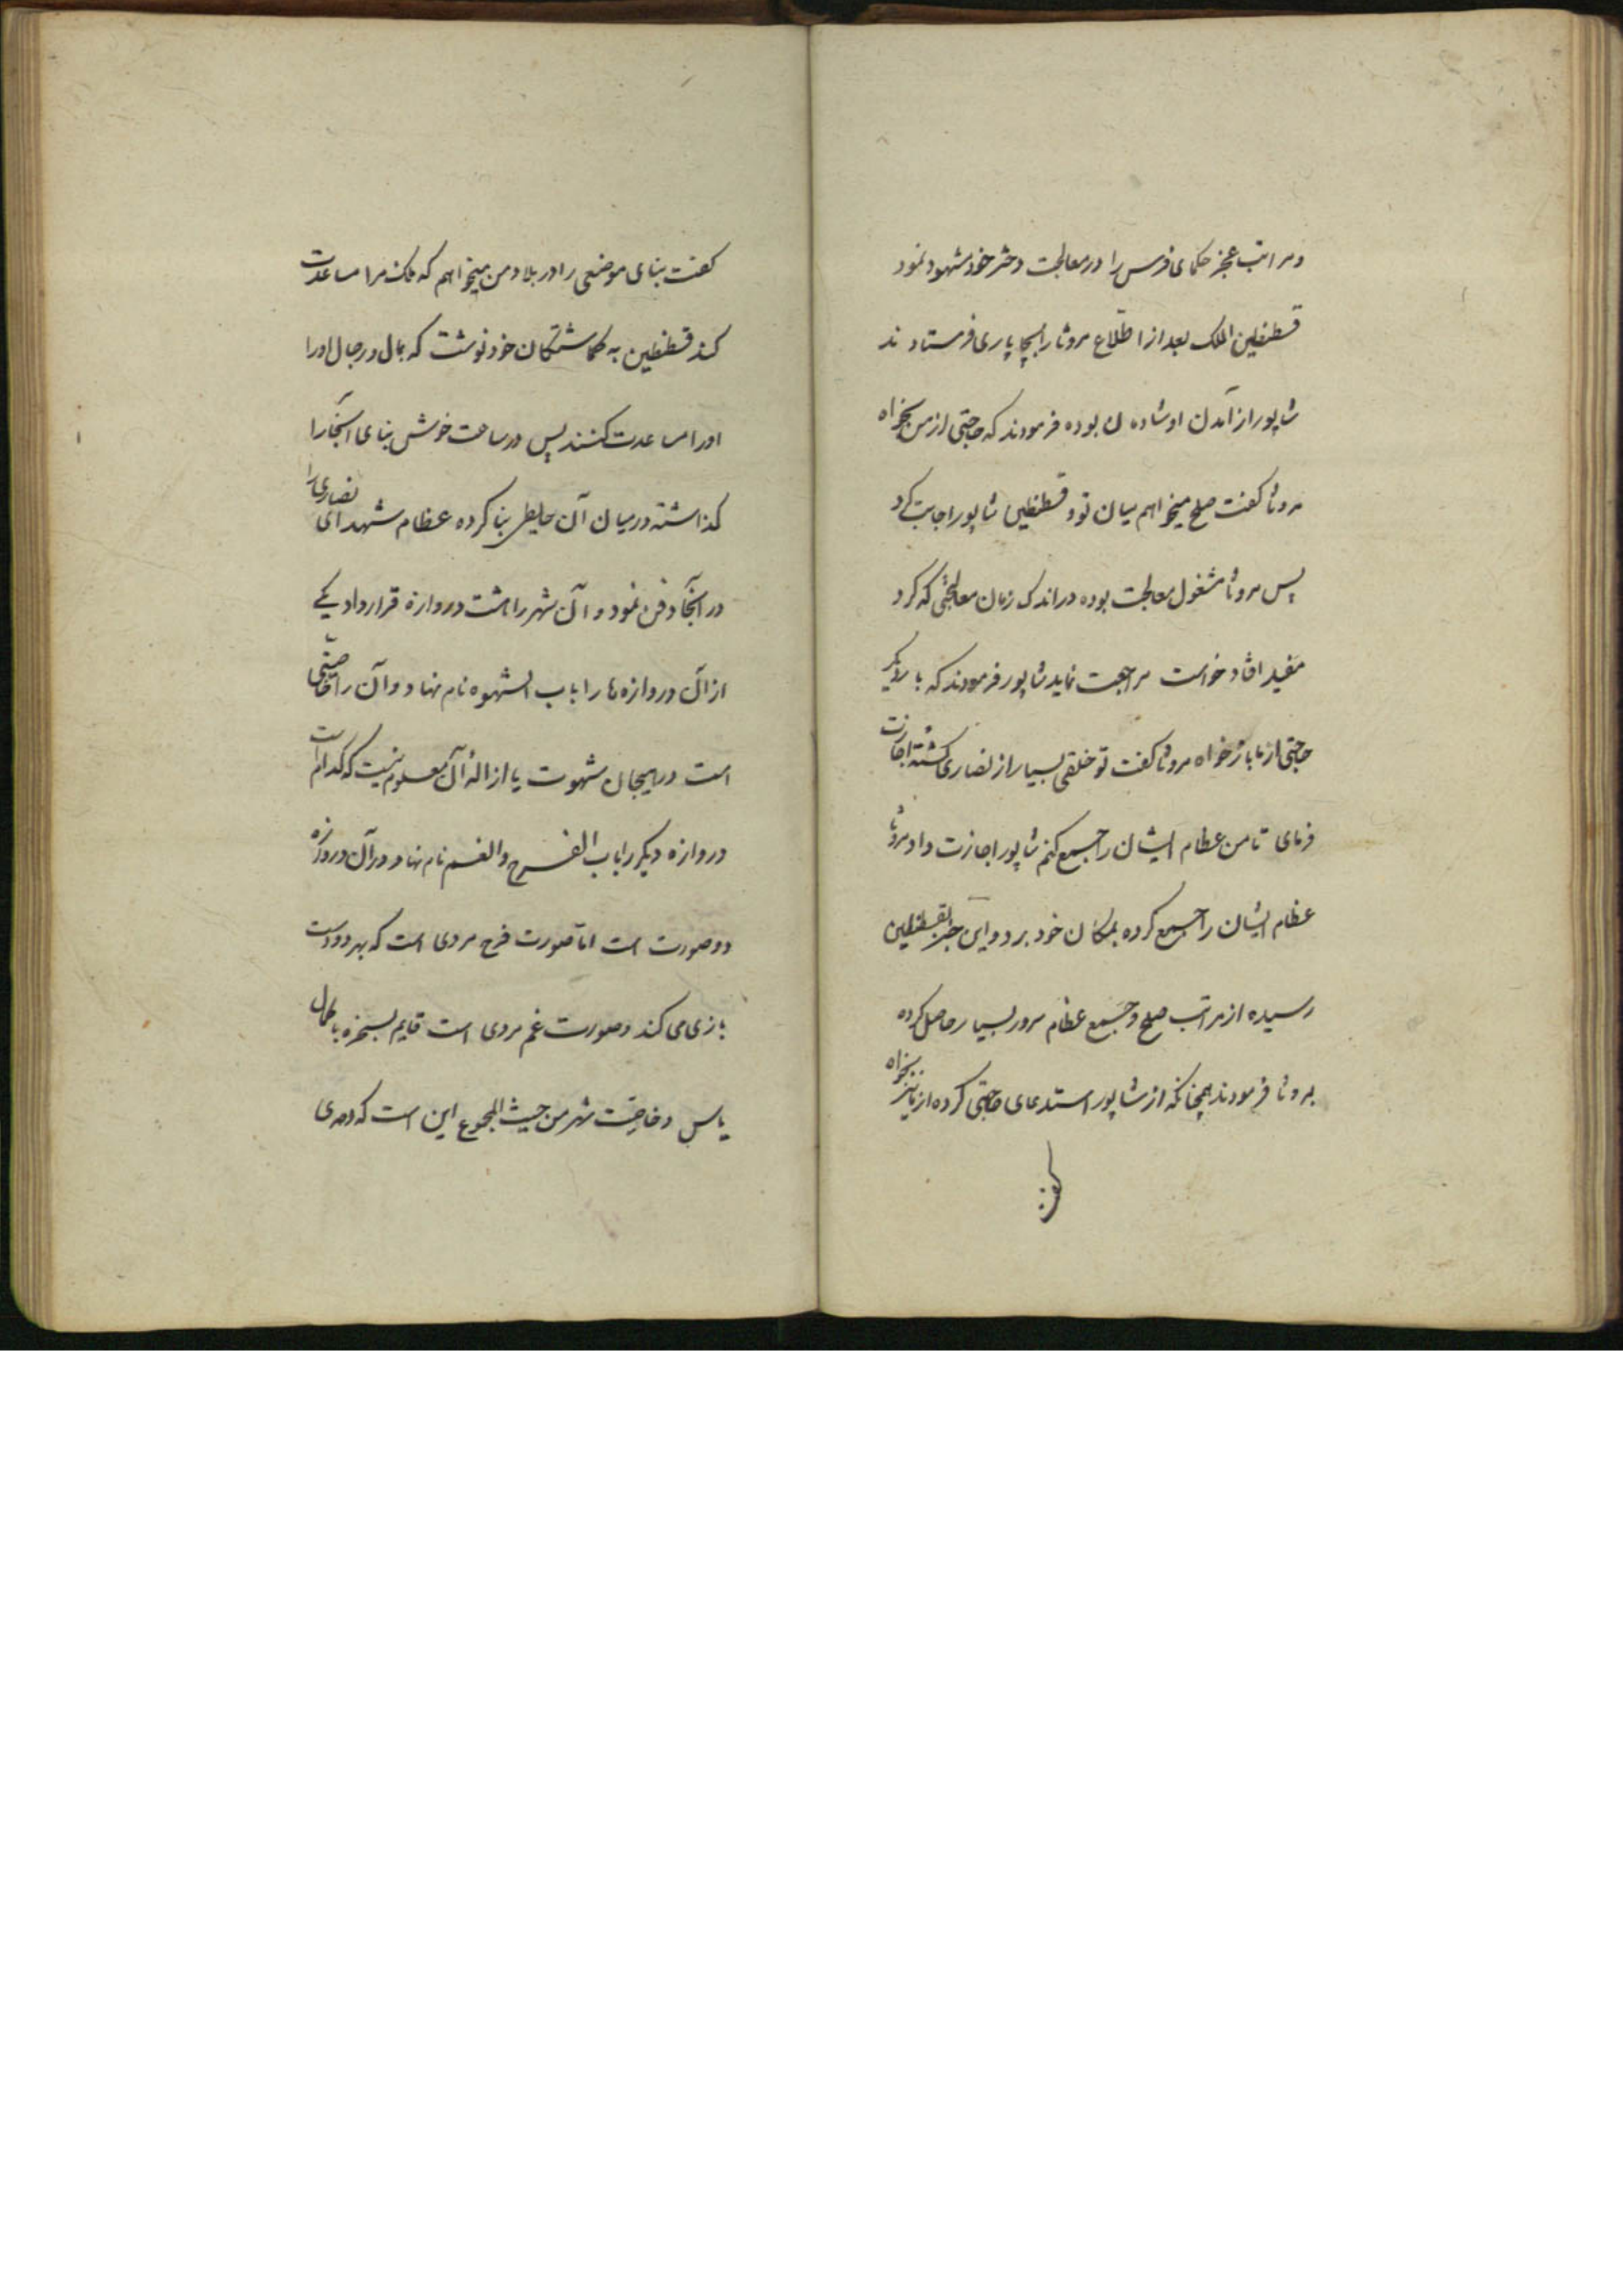 ومراتب عجز حکمای فرس را در معالجت دختر خود مشهود نمود
قسطنطین الملک بعد از اطلاع مروثا را بچاپاری فرستادند
شاپور از آمدن او شادمان بوده فرمودند که حاجتی از من بخواه
مروثا کفت صلح میخواهم میان تو و قسطنطین شاپور اجابت کرد
پس مروثا مشغول معالجت بوده در اندک زمان معالجتی که کرد
مفید افتاد خواست مراجعت نماید شاپور فرمودند که بار دیکر
حاجتی از ما باز خواه مروثا کفت تو خلقی بسیار از نصاری کشته اجازت
فرمای تا من عظام ایشان را جمیع کنم شاپور اجازت داد مروثا
عظام ایشان را جمیع کرده بمکان خود برد و این خبر بقسطنطین
رسیده از مراتب صلح و جمیع عظام سرور بسیار حاصل کرده
بمروثا فرمودند همچنانکه از شاپور استدعای حاجتی کرده از ما نیز بخواه
کفت
کفت بنای موضعی را در بلاد من میخواهم که ملک مرا مساعدت
کند قسطنطین به کماشتکان خود نوشت که بمال و رجال او را
او را مساعدت کنند پس در ساعت خوش بنای آنجا را
کذاشته در میان آن بنا کرده عظام شهدای نصاری را
در آنجا دفن نمود و آن شهر را هشت دروازه قرار داد یکی
از آن دروازه ها را باب الشهوه نام نهاد و آن را خاصیتی
است در هیجان شهوت یا ازالهٔ آن معلوم نیست که کدام است
دروازه دیکر را باب الفرح والغم نام نهاد و در آن دروازه
دو صورت است اما صورت فرح مردی است که بهر دو دست
بازی می کند و صورت غم مردی است قایم بسخره با کمال
یاس و خاصیت شهر من حیث المجموع این است که دمی